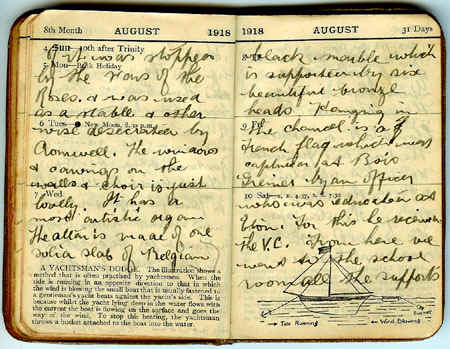 8th Month AUGUST 1918
4 Sun—10th after Trinity
5 Mon—Bank Holiday
6 Tues— New Moon, 8.30 p.m.
7 Wed
it was stopped
by the Wars of the
Roses. & was used
as a stable & other
wise desecrated by
Cromwell. The windows
& carvings on the
walls & choir is just
lovely. It has a
most artistic organ
The altar is made of one
solid slab of Belgian
A YACHTSMAN'S DODGE. The illustration shows a
method that is often practised by yachtsmen. When the
tide is running in an opposite direction to that in which
the wind is blowing the small boat that is usually fastened to
a gentleman's yacht beats against the yacht's side. This is
because whilst the yacht lying deep in the water flows with
the current the boat is floating on the surface and goes the
way of the wind. To stop this beating, the yachtsman
throws a bucket attached to the boat into the water.
1918 AUGUST 31 Days
9 Fri
10 Sat
black marble which
is supported by six
beautiful bronze
heads. Hanging in
the chancel is a
French flag which was
captured at Bois
Grenier by an officer
who was educated at
Eton. For this he received
the V.C. From here we
went to the school
room all the supports
Tide Running
Wind Blowing
Bucket